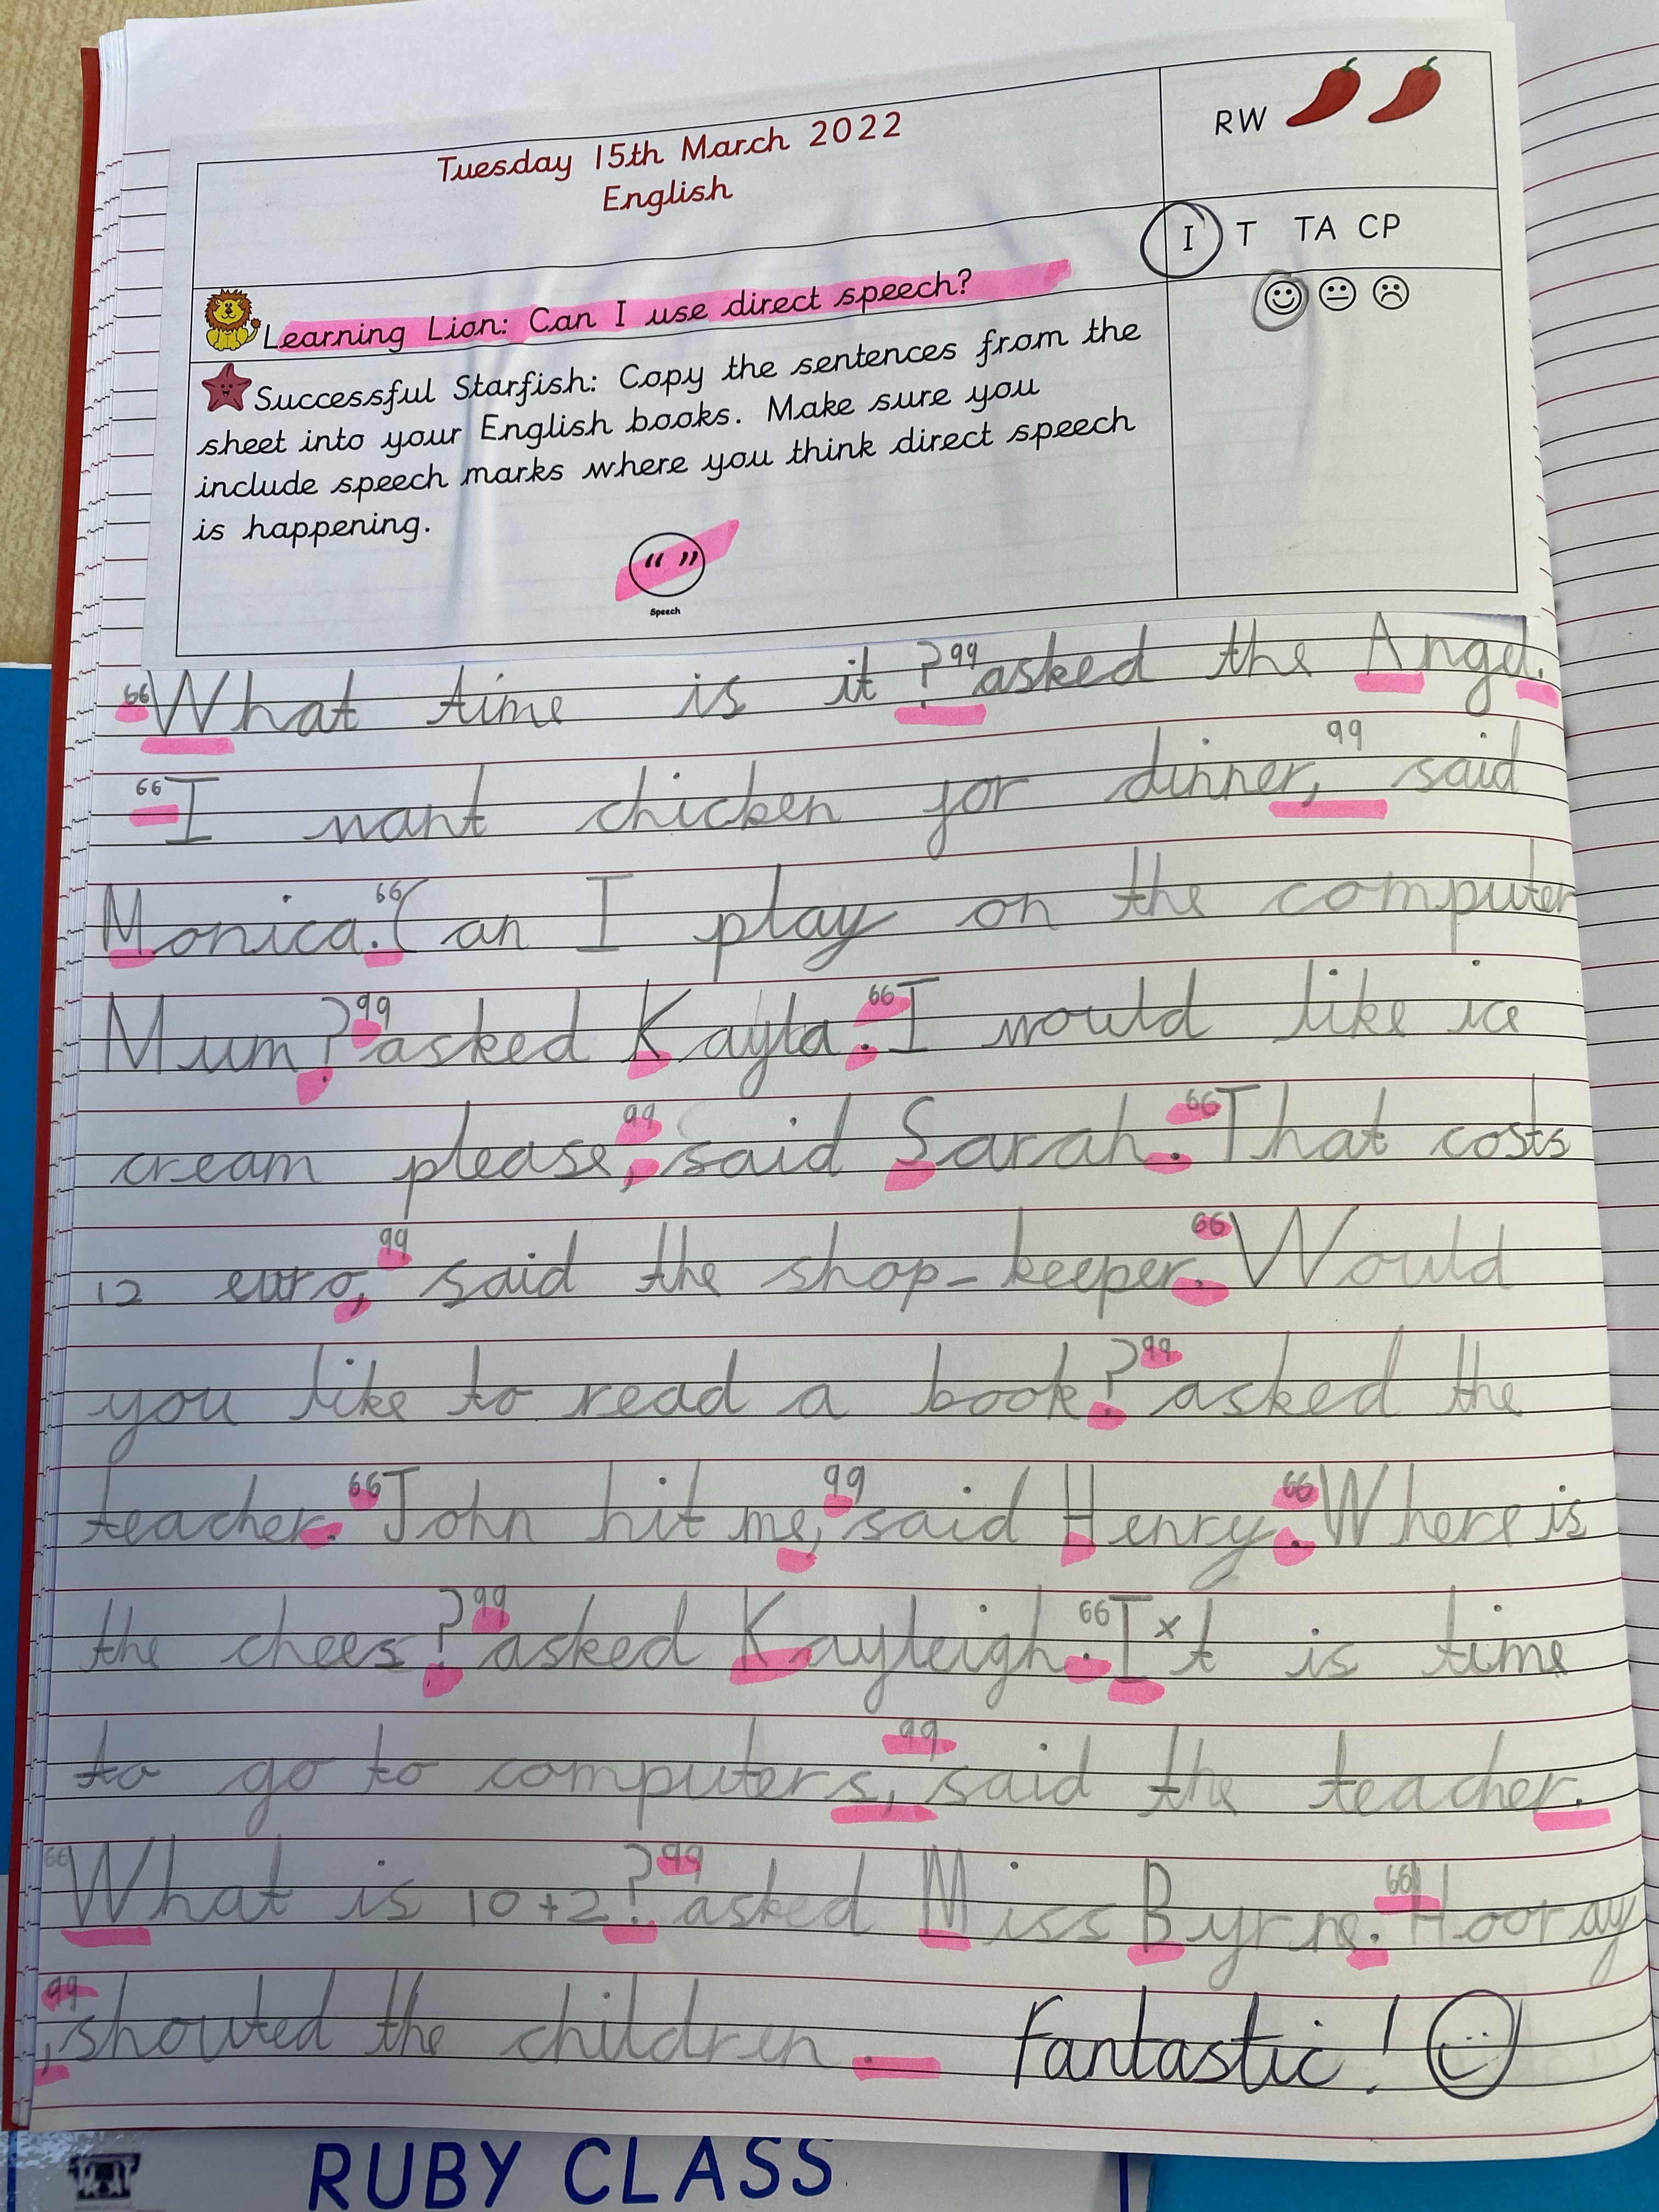 Tuesday 15th March 2022
English
RW
I T TA CP
Learning Lion: Can I use direct speech?
Successful Starfish: Copy the sentences from the
sheet into your English books. Make sure you
include speech marks where you think direct speech
is happening.
“ ”
Speech
“What time is it ?” asked the Angel.
“I want chicken for dinner,” said
Monica. “Can I play on the computer
Mum?” asked Kayla. “I would like ice
cream please,” said Sarah. “That costs
12 euro,” said the shop-keeper. “Would
you like to read a book?” asked the
teacher. “John hit me,” said Henry. “Where is
the chees?” asked Kayleigh. “I x t is time
to go to computers,” said the teacher.
“What is 10+2?” asked Miss Byrne. “Hooray
,” shouted the children .
Fantastic!
RUBY CLASS